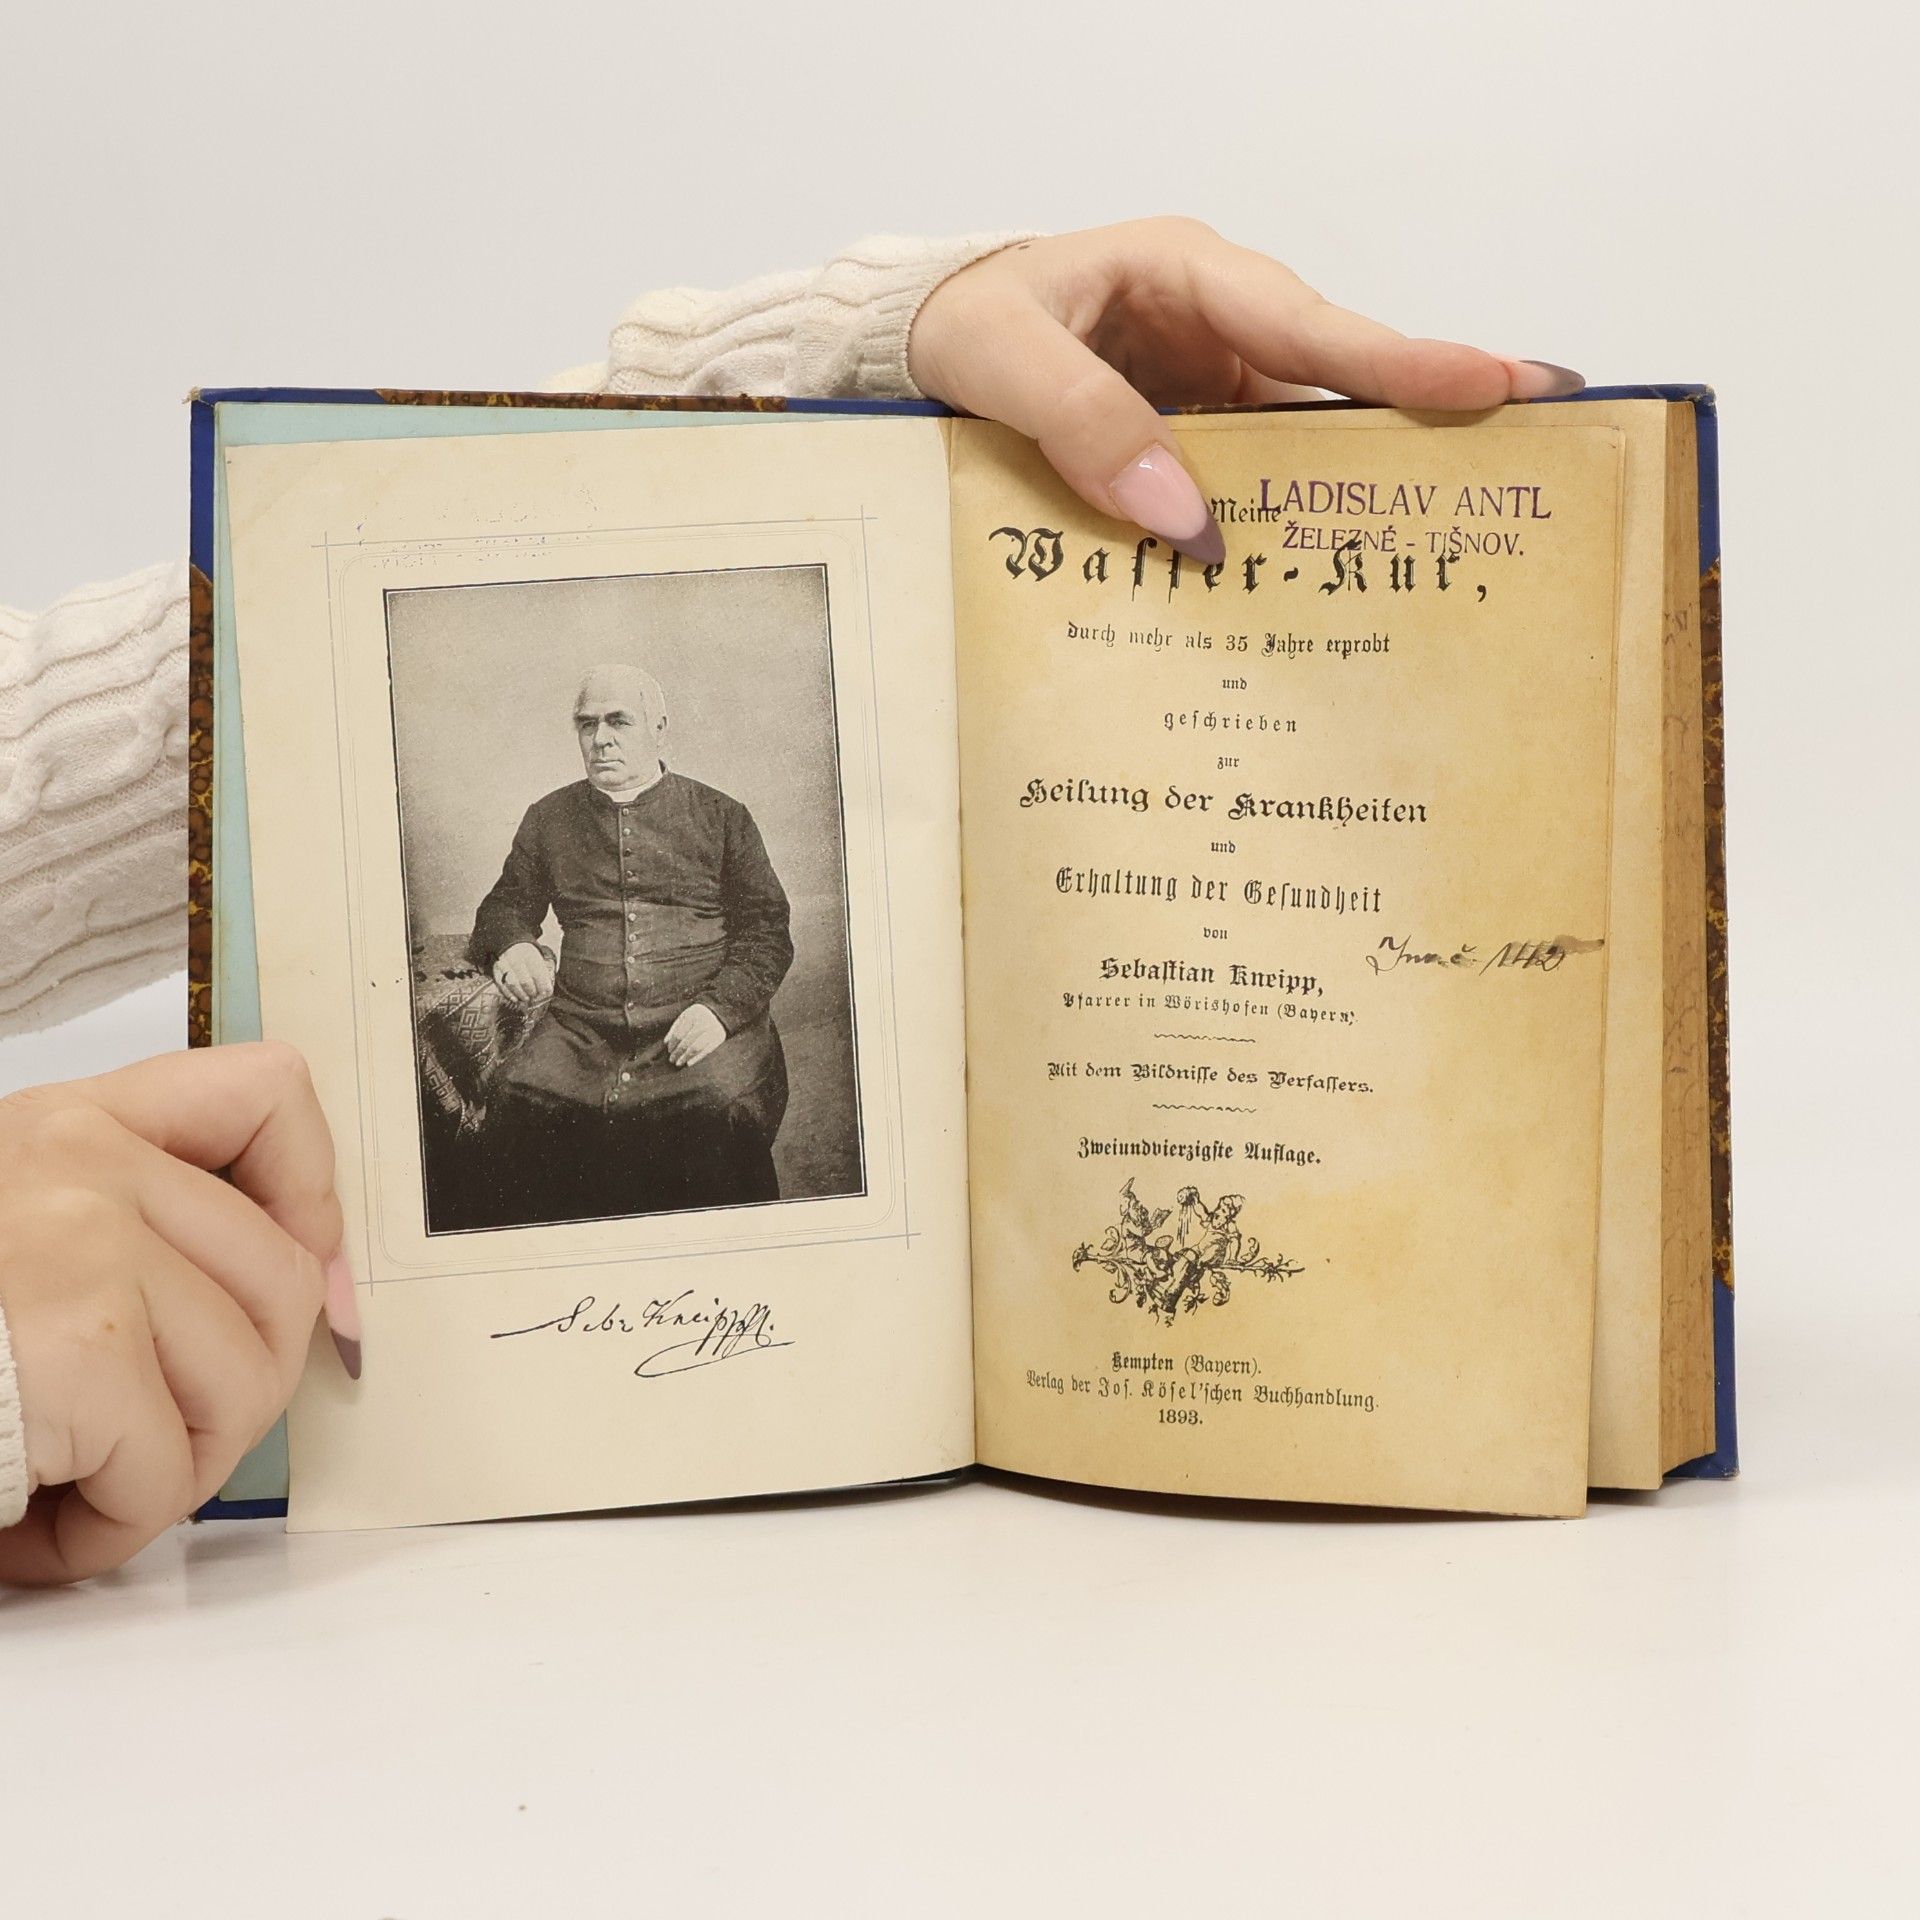 Sebr Kneipp
Meine
LADISLAV ANTL
ŽELEZNÉ - TIŠNOV.
Waſſer-Kur,
durch mehr als 35 Jahre erprobt
und
geſchrieben
zur
Heilung der Krankheiten
und
Erhaltung der Geſundheit
von
Sebaſtian Kneipp,
Pfarrer in Wörishofen (Bayern).
Inv. č. 142
Mit dem Bildniſſe des Verfaſſers.
Zweiundvierzigſte Auflage.
Kempten (Bayern).
Verlag der Joſ. Köſel'ſchen Buchhandlung.
1893.